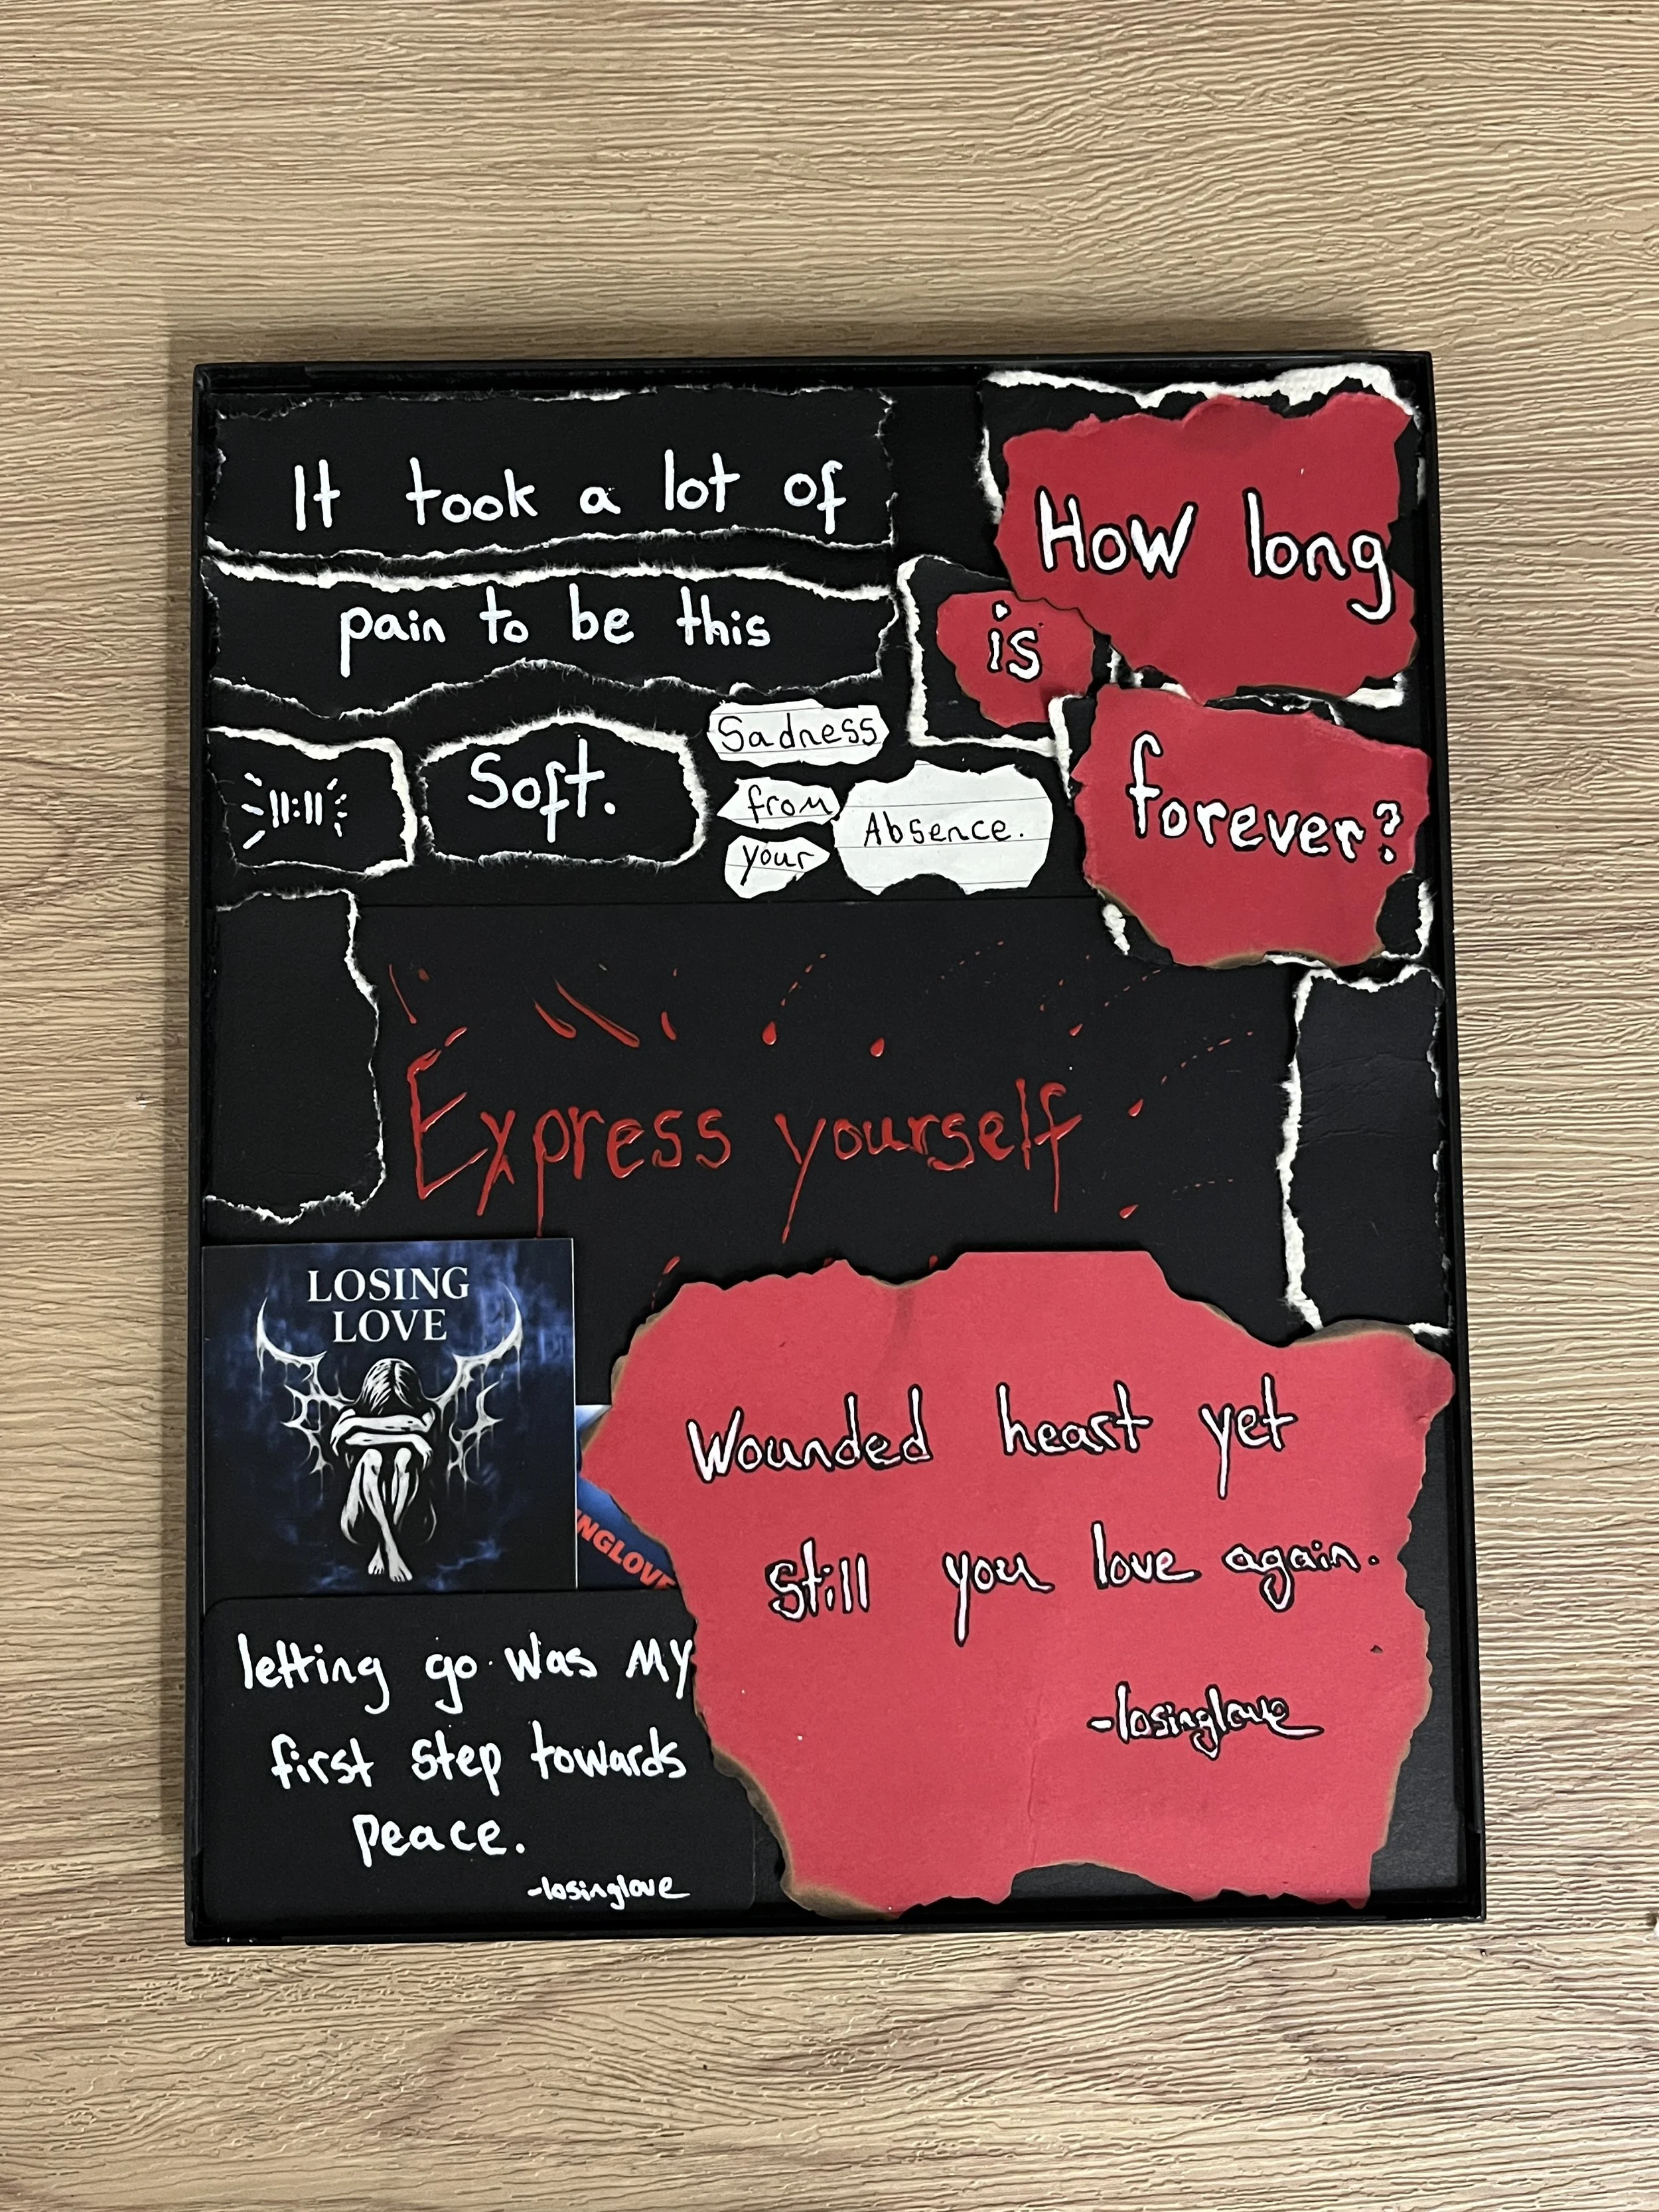 It took a lot of
pain to be this
11:11
Soft.
Sadness
from
your
Absence.
How long
is
forever?
Express yourself
LOSING
LOVE
INGLOVE
Wounded heart yet
still you love again.
-losinglove
letting go was My
first step towards
peace.
-losinglove